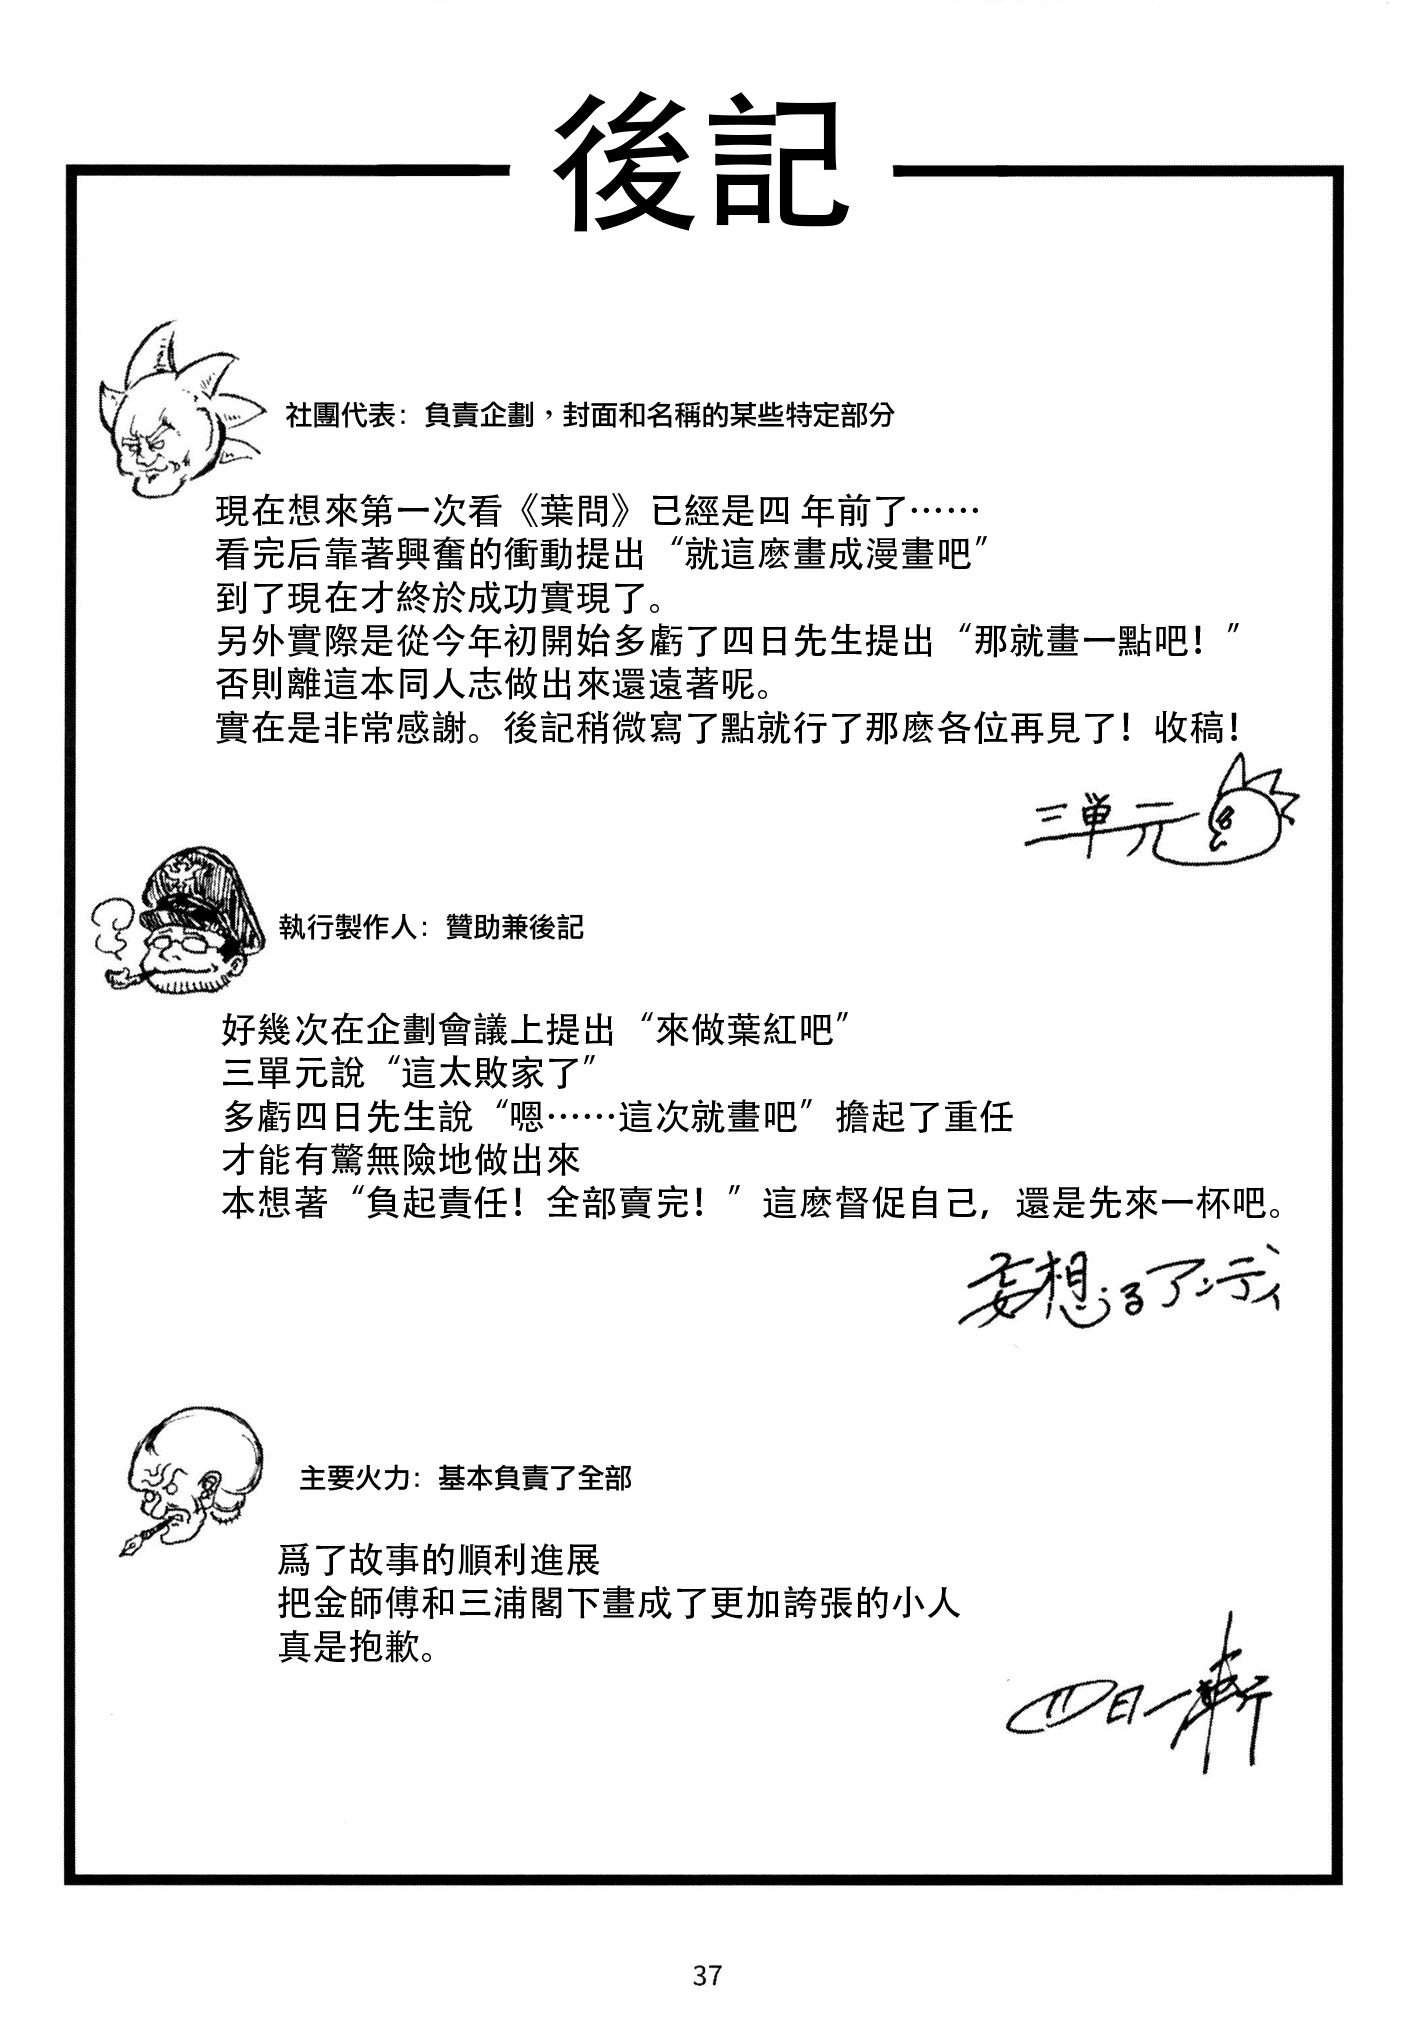 後記
社團代表：負責企劃，封面和名稱的某些特定部分
現在想來第一次看《葉問》已經是四 年前了……
看完后靠著興奮的衝動提出“就這麽畫成漫畫吧”
到了現在才終於成功實現了。
另外實際是從今年初開始多虧了四日先生提出“那就畫一點吧！”
否則離這本同人志做出來還遠著呢。
實在是非常感謝。後記稍微寫了點就行了那麽各位再見了！收稿！
三単元
執行製作人：贊助兼後記
好幾次在企劃會議上提出“來做葉紅吧”
三單元說“這太敗家了”
多虧四日先生說“嗯……這次就畫吧”擔起了重任
才能有驚無險地做出來
本想著“負起責任！全部賣完！”這麽督促自己，還是先來一杯吧。
妄想うるアンディ
主要火力：基本負責了全部
爲了故事的順利進展
把金師傅和三浦閣下畫成了更加誇張的小人
真是抱歉。
四日一斬
37